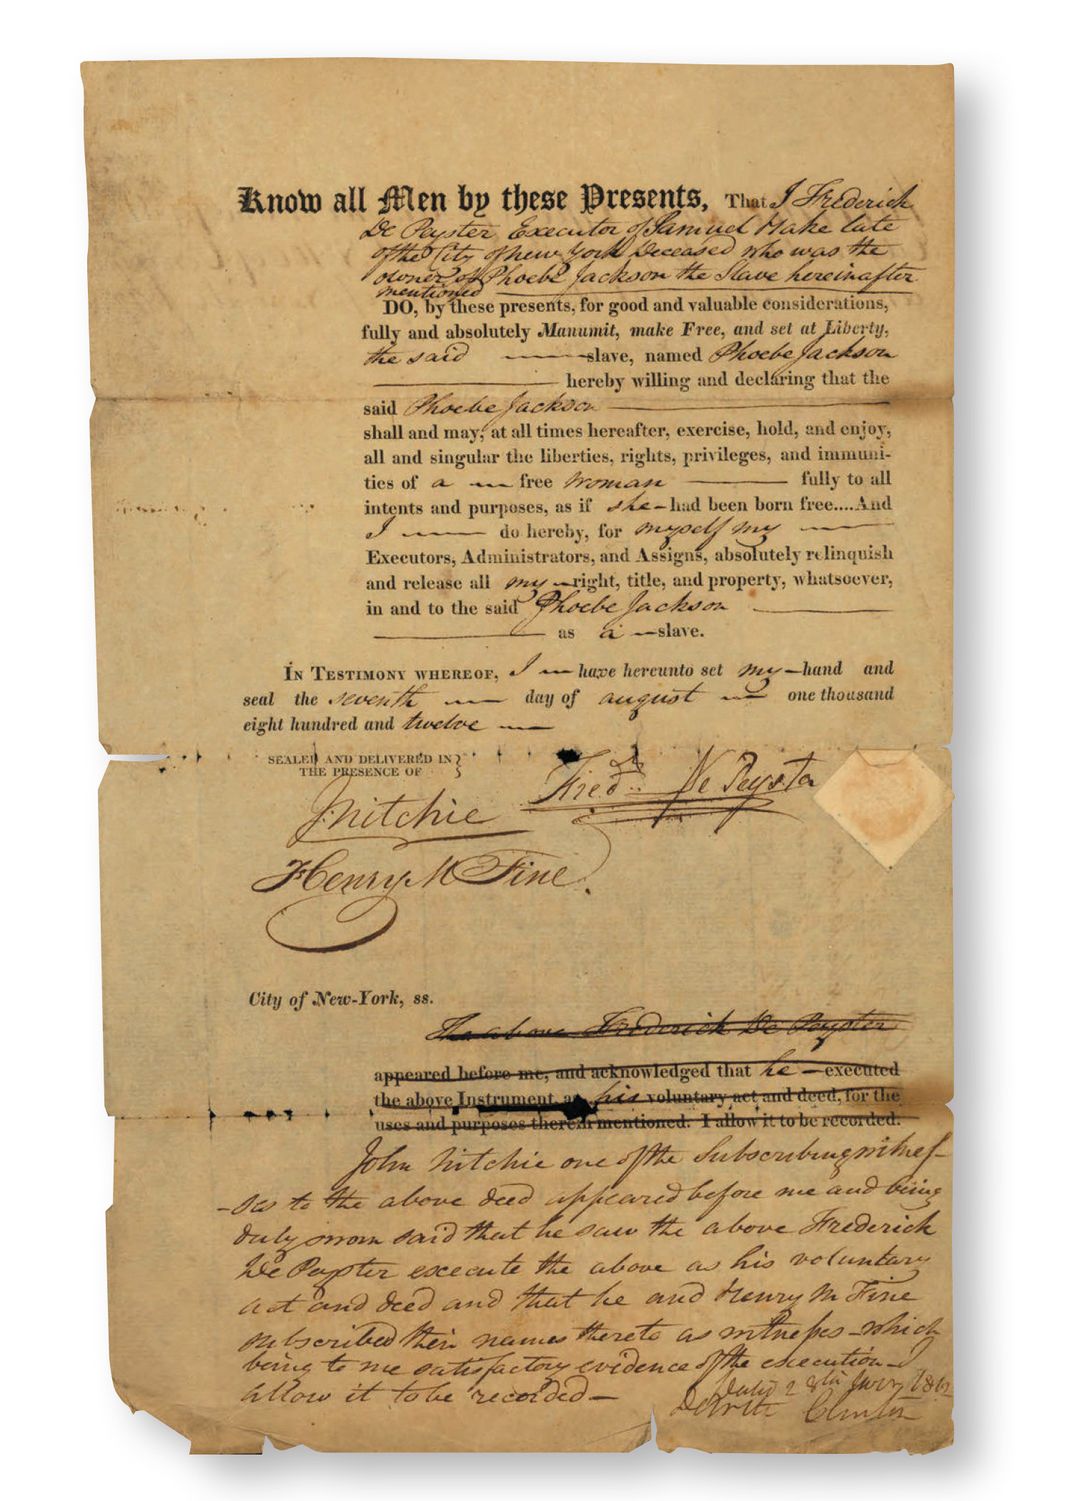 Know all Men by these Presents, That I Frederick
De Peyster Executor of Samuel Hake late
of the City of New York Deceased who was the
owner of Phoebe Jackson the Slave hereinafter
mentioned
DO, by these presents, for good and valuable considerations,
fully and absolutely Manumit, make Free, and set at Liberty,
the said slave, named Phoebe Jackson
hereby willing and declaring that the
said Phoebe Jackson
shall and may, at all times hereafter, exercise, hold, and enjoy,
all and singular the liberties, rights, privileges, and immuni-
ties of a free woman fully to all
intents and purposes, as if she had been born free....And
I do hereby, for myself my
Executors, Administrators, and Assigns, absolutely relinquish
and release all my right, title, and property, whatsoever,
in and to the said Phoebe Jackson
as a slave.
IN TESTIMONY WHEREOF, I have hereunto set my hand and
seal the seventh day of august one thousand
eight hundred and twelve
SEALED AND DELIVERED IN
THE PRESENCE OF
Fred. De Peyster
J. Nitchie
Henry M Fine.
City of New-York, ss.
The above Frederick De Peyster
appeared before me, and acknowledged that he executed
the above Instrument, as his voluntary act and deed, for the
uses and purposes therein mentioned. I allow it to be recorded.
John Nitchie one of the Subscribing witnes-
-ses to the above deed appeared before me and being
duly sworn said that he saw the above Frederick
De Peyster execute the above as his voluntary
act and deed and that he and Henry M Fine
subscribed their names thereto as witnesses - which
being to me satisfactory evidence of the execution - I
allow it to be recorded -
Dated 28th
DeWitt Clinton